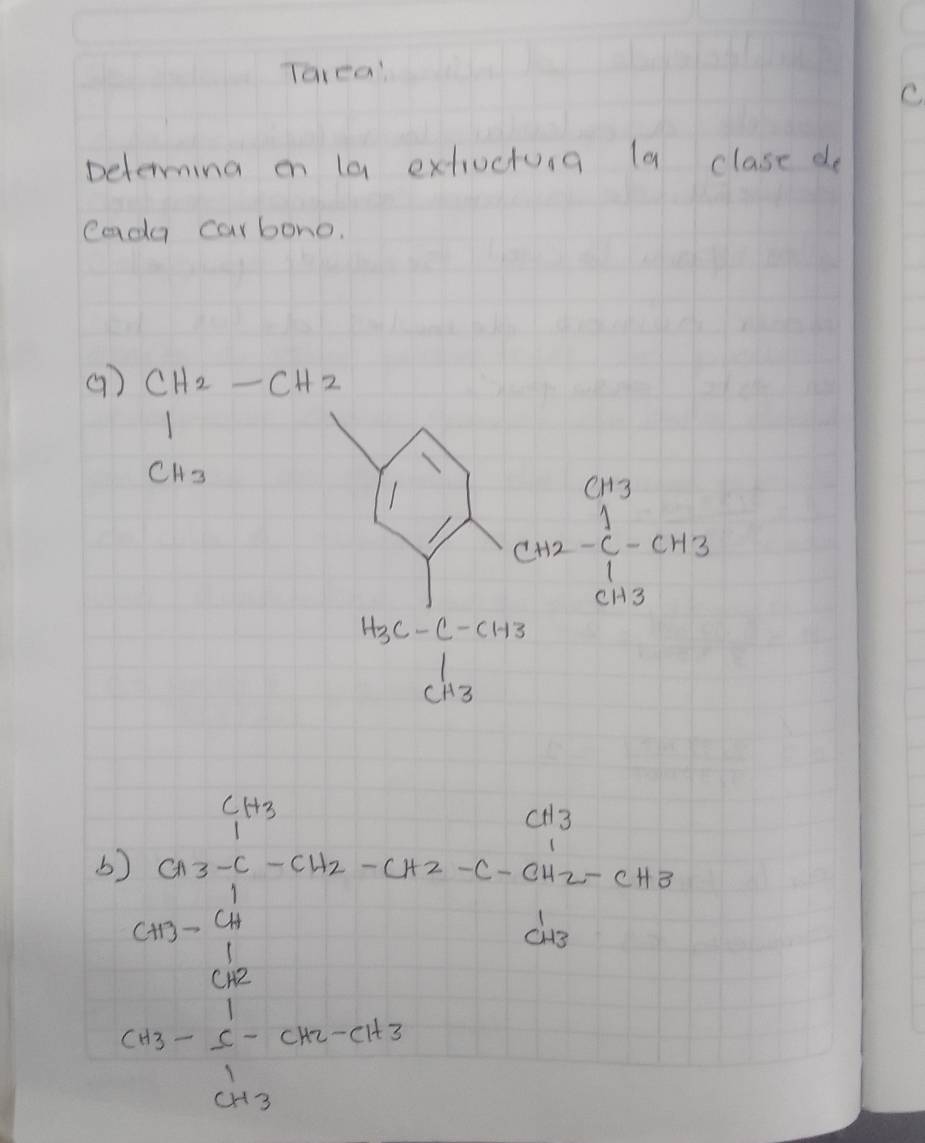 Tarea:
Determina en la extructura la clase de
cada carbono.
a) CH2 - CH2
CH3
CH3
CH2 - C - CH3
CH3
H3C - C - CH3
CH3
CH3
CH3
b) CH3 - C - CH2 - CH2 - C - CH2 - CH3
CH3 - CH
CH3
CH2
CH3 - C - CH2 - CH3
CH3
C